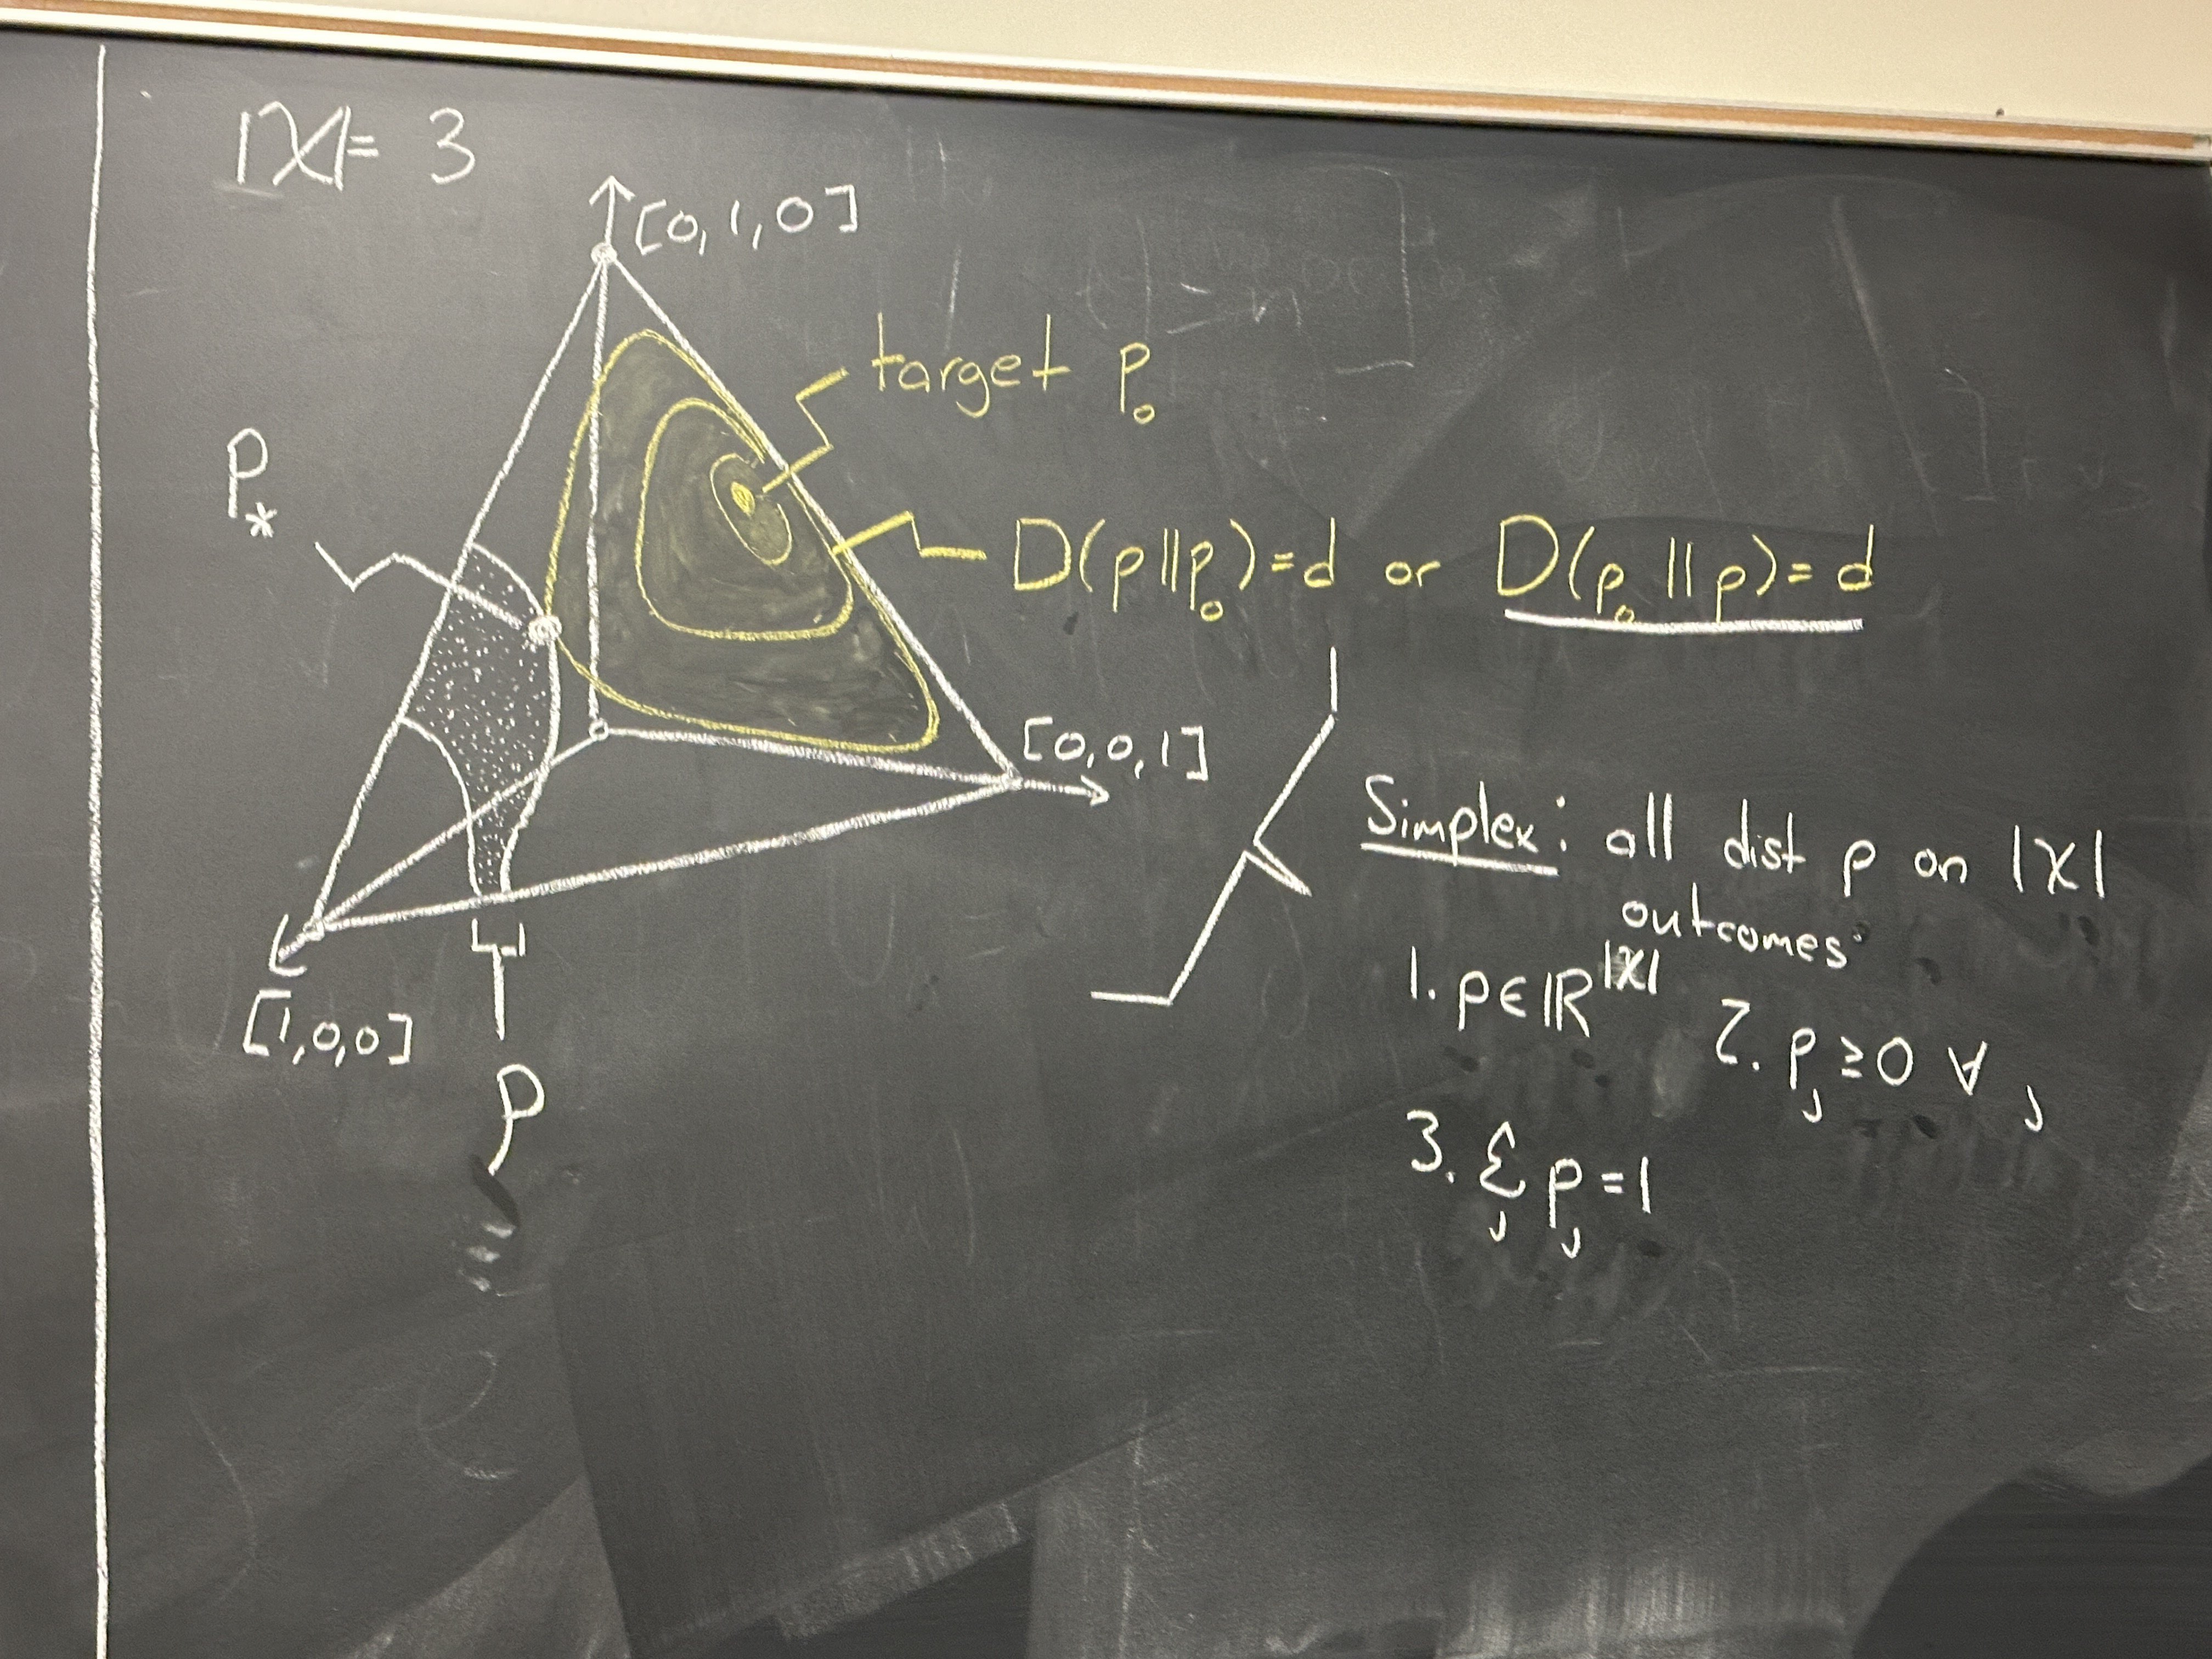 |X| = 3
[0, 1, 0]
target p₀
P*
D(p||p₀) = d or D(p₀||p) = d
[0, 0, 1]
Simplex: all dist p on |X|
outcomes
[1, 0, 0]
1. p ∈ ℝ^|X| 2. pⱼ ≥ 0 ∀ j
P
3. Σⱼ pⱼ = 1